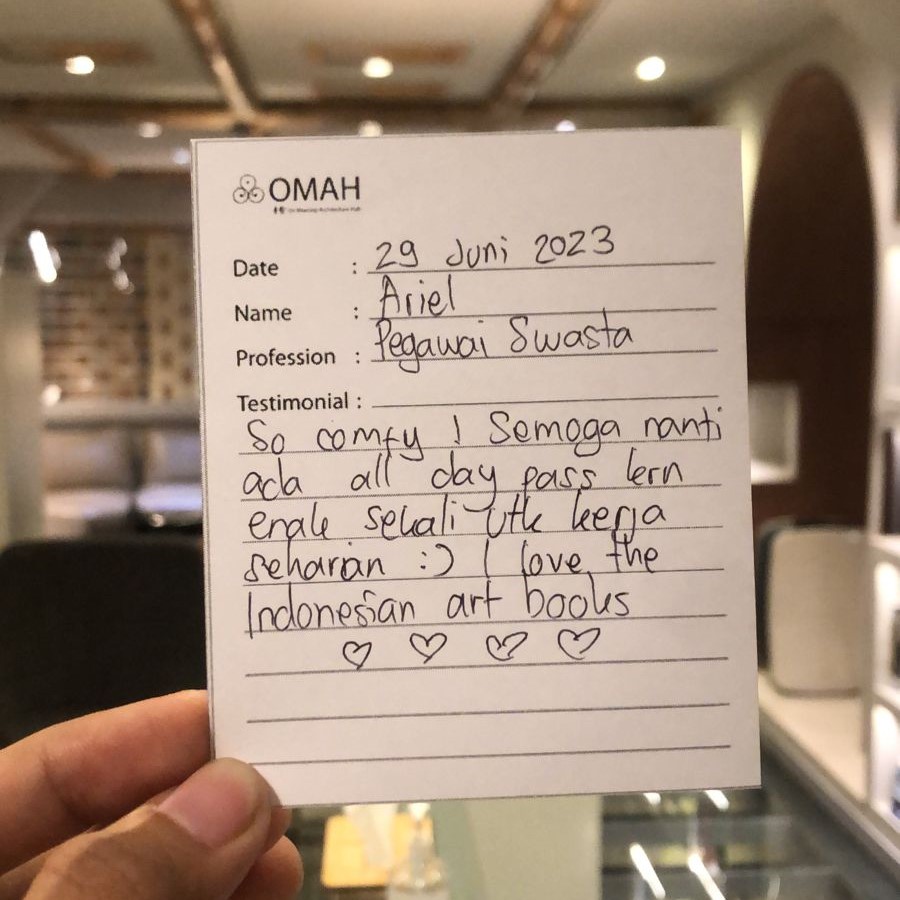 OMAH
Date : 29 Juni 2023
Name : Ariel
Profession : Pegawai Swasta
Testimonial :
So comfy ! Semoga nanti
ada all day pass krn
enak sekali utk kerja
seharian :) I love the
Indonesian art books
♡ ♡ ♡ ♡